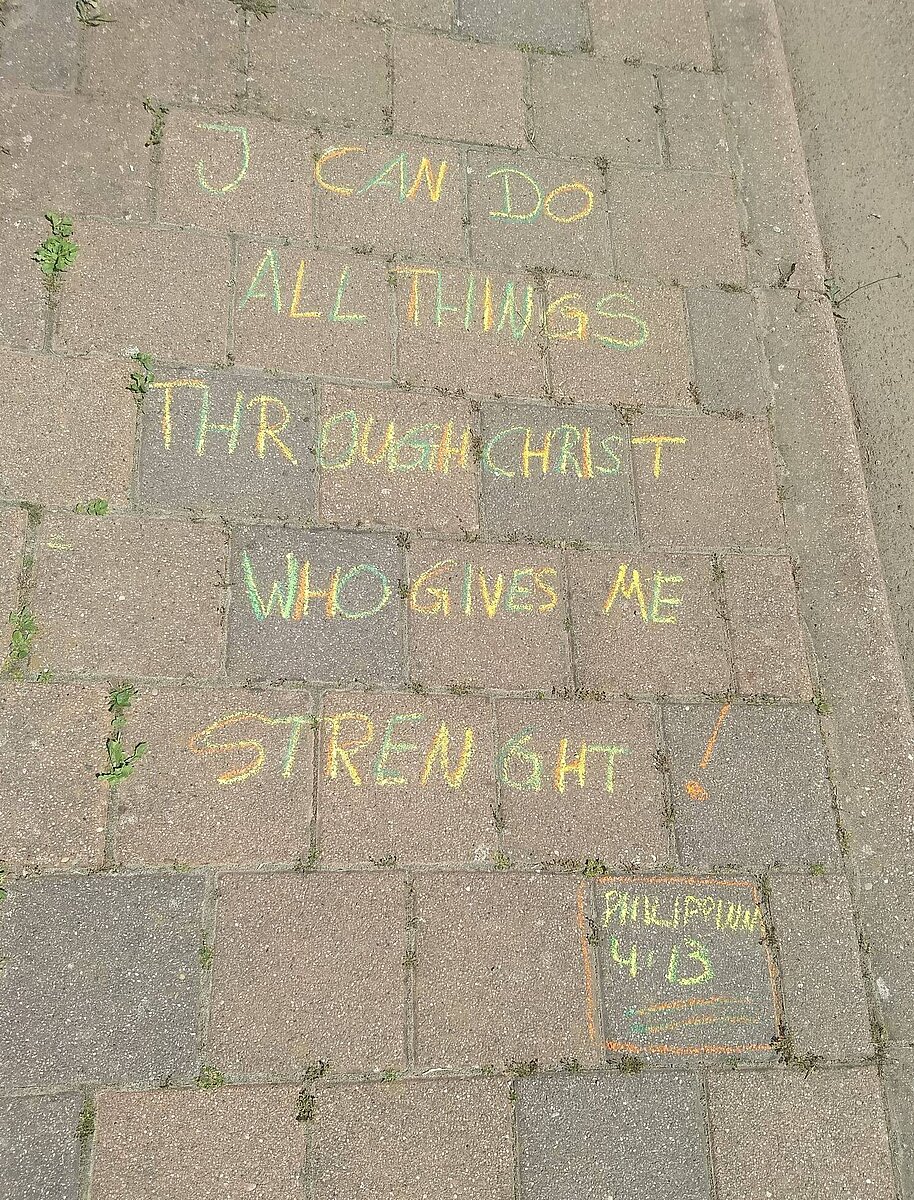 I CAN DO
ALL THINGS
THROUGH CHRIST
WHO GIVES ME
STRENGHT !
4:13